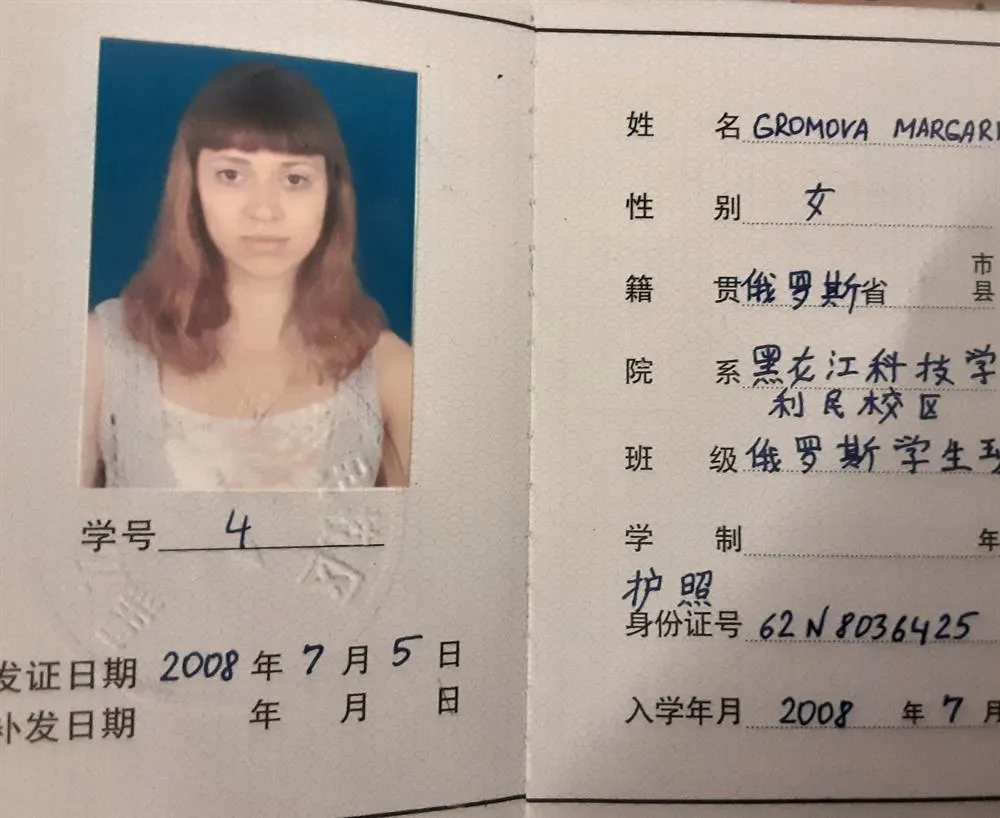 学号 4
发证日期 2008 年 7 月 5 日
补发日期 年 月 日
姓 名 GROMOVA MARGARI
性 别 女
籍 贯 俄罗斯 省 市 县
院 系 黑龙江科技学
利民校区
班 级 俄罗斯学生
学 制 年
护照
身份证号 62N8036425
入学年月 2008 年 7 月